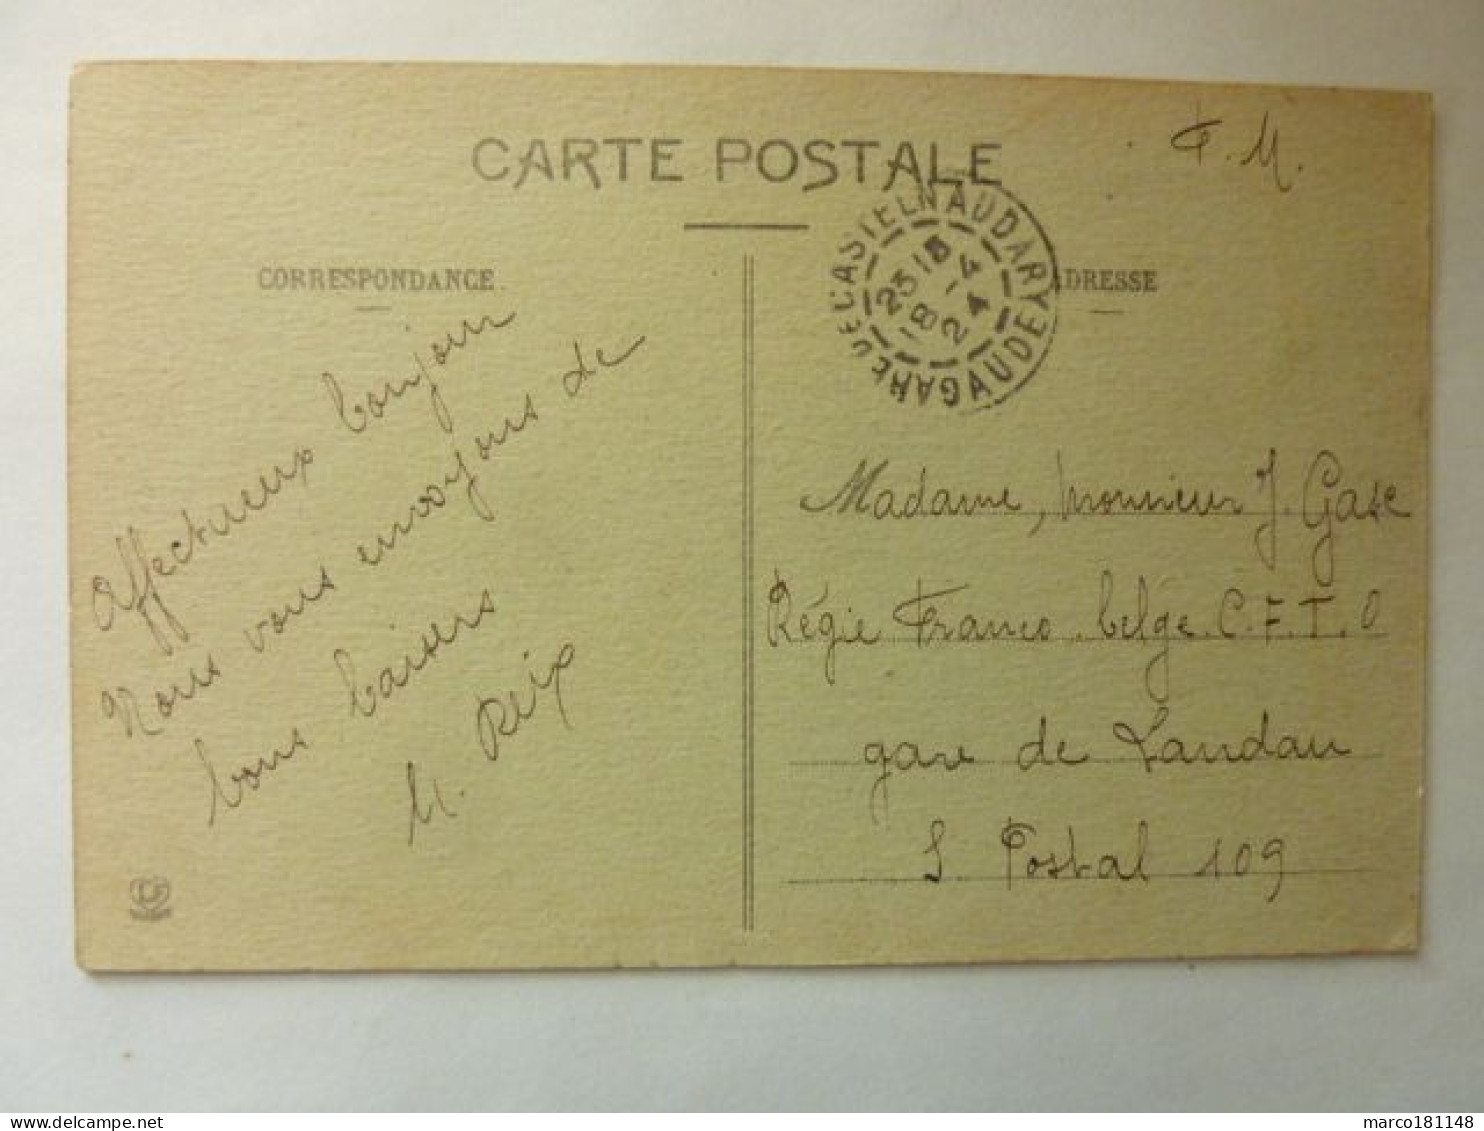 CARTE POSTALE
F. M.
CORRESPONDANCE.
ADRESSE
GARE DE CASTELNAUDARY
AUDE
23 15
18 -4
24
Affectueux bonjour
Nous vous envoyons de
bons baisers
M. Reix
Madame, Monsieur J. Gase
Régie Franco. belge. C.F.T.O
gare de Landau
S. Postal 109
delcampe.net
marco181148